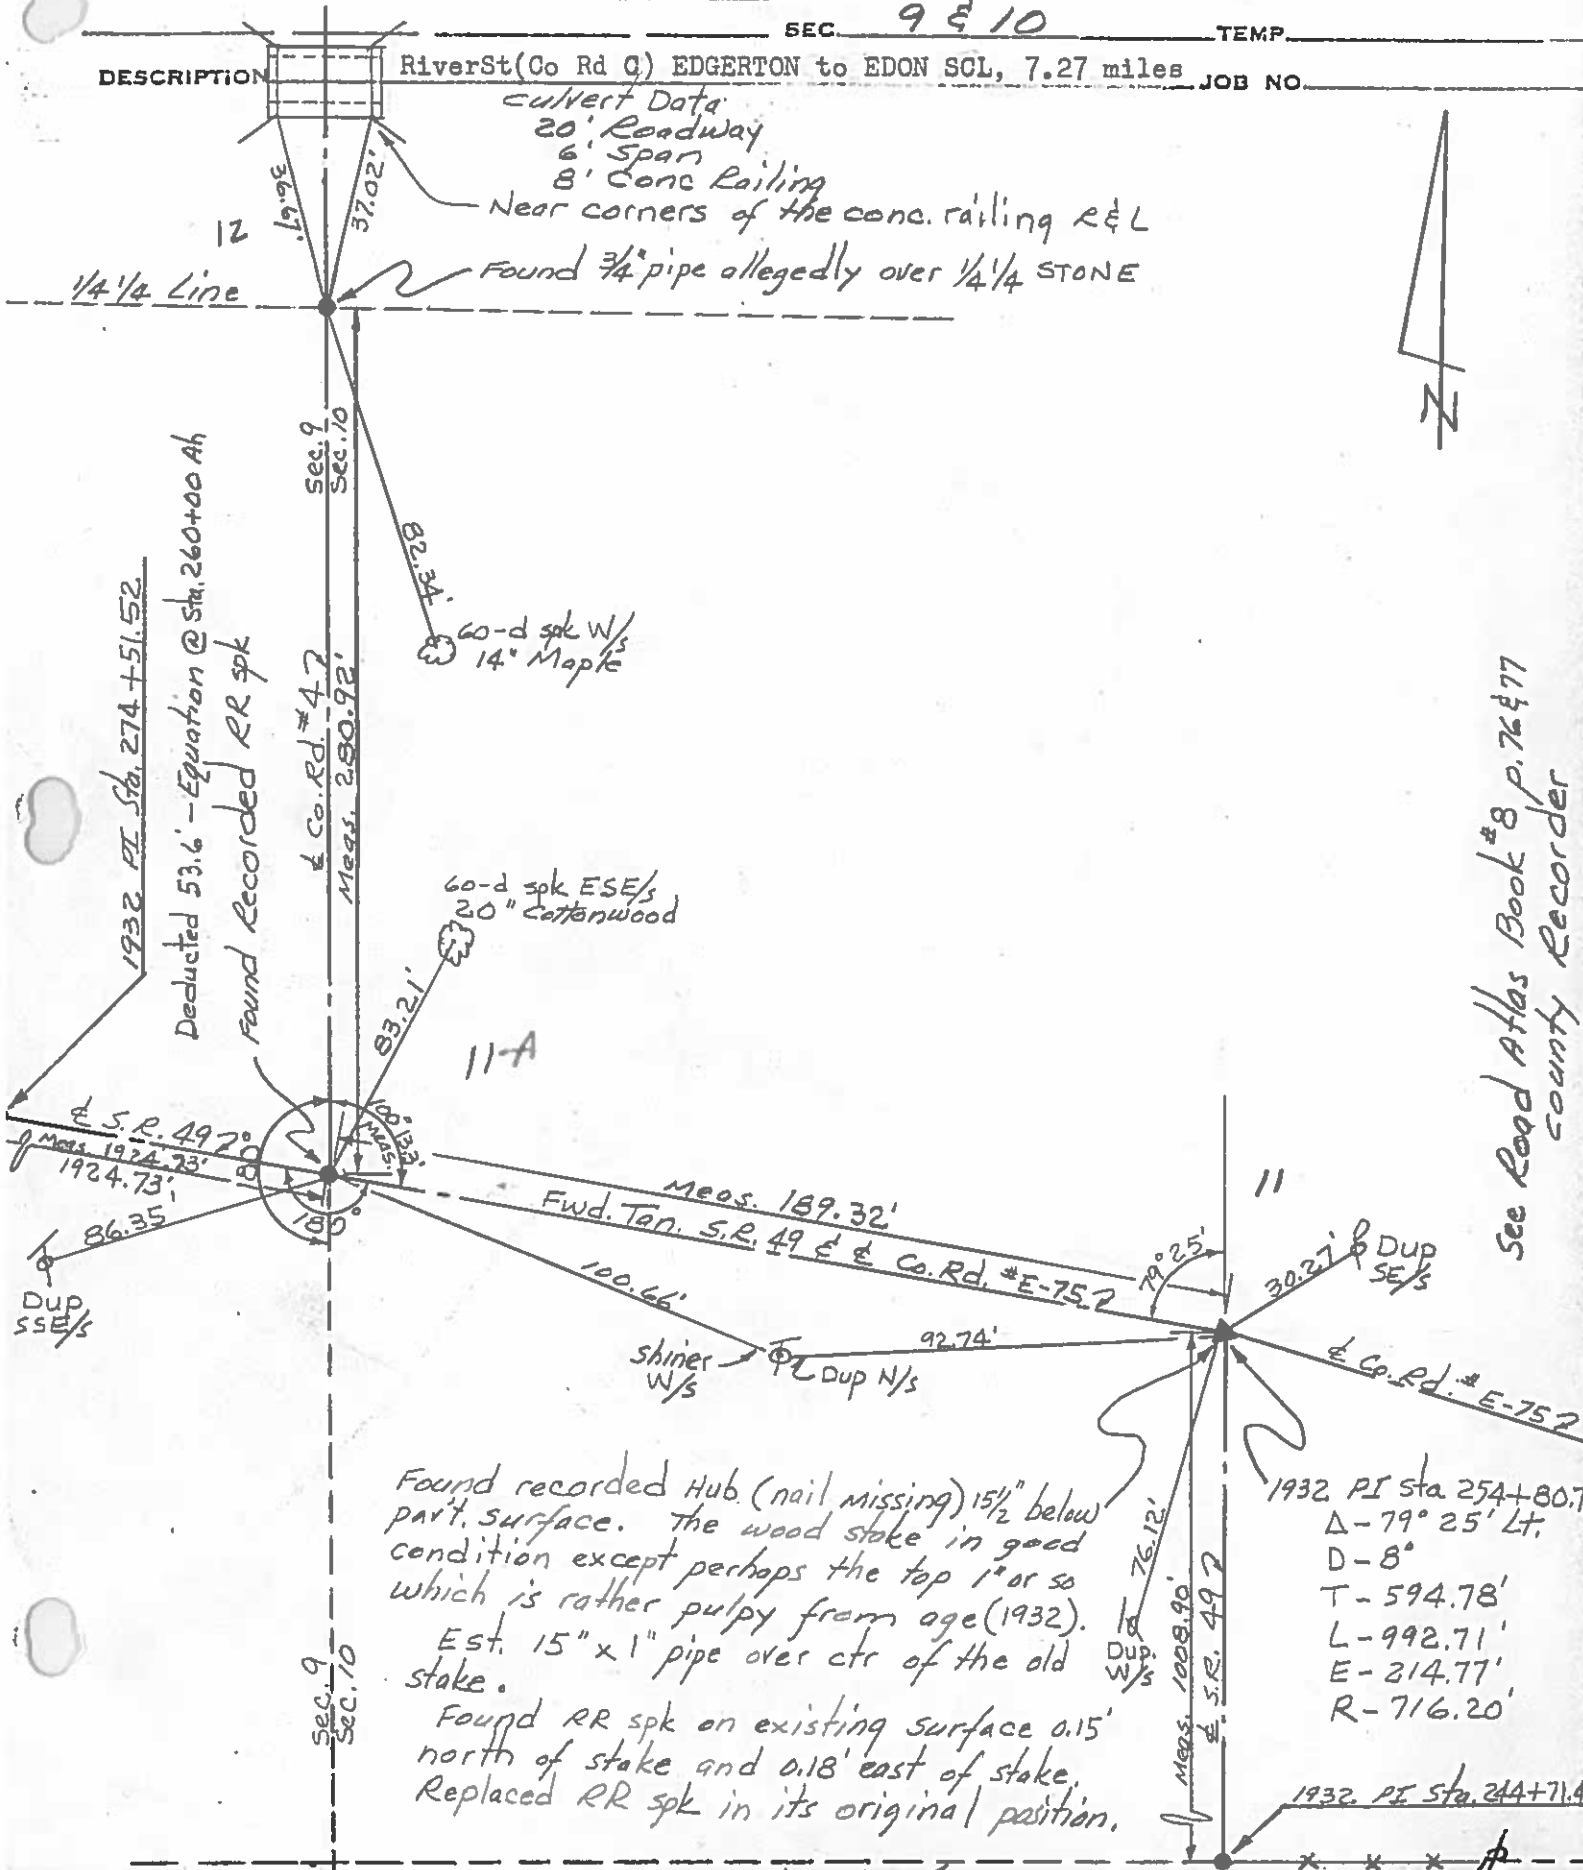 SEC. 9 & 10 TEMP.
DESCRIPTION RiverSt(Co Rd C) EDGERTON to EDON SCL, 7.27 miles JOB NO.
Culvert Data
20' Roadway
6' Span
8' Conc Railing
Near corners of the conc. railing R&L
36.67'
37.02'
12
Found 3/4" pipe allegedly over 1/4 1/4 STONE
1/4 1/4 Line
N
Sec. 9
Sec. 10
82.34'
60-d spk W/s
14" Maple
1932 PI Sta. 274+51.52
Deducted 53.6' - Equation @ Sta. 260+00 Ah
Found Recorded RR spk
℄ Co. Rd. #47
Meas. 280.92'
60-d spk ESE/s
20" Cottonwood
83.21'
11-A
See Road Atlas Book #8 p. 76 & 77
County Recorder
℄ S.R. 49
Meas. 1924.73'
1924.73'
86.35'
Dup
SSE/s
180°
100° 13.3'
Meas.
Meas. 189.32'
Fwd. Tan. S.R. 49 & ℄ Co. Rd. #E-75
100.66'
Shiner
W/s
Dup N/s
92.74'
79° 25'
11
30.27'
Dup
SE/s
℄ Co. Rd. #E-75
Found recorded Hub (nail missing) 15 1/2" below
pav't. surface. The wood stake in good
condition except perhaps the top 1" or so
which is rather pulpy from age (1932).
Est. 15" x 1" pipe over ctr of the old
stake.
Found RR spk on existing surface 0.15'
north of stake and 0.18' east of stake.
Replaced RR spk in its original position.
76.12'
Dup.
W/s
Meas. 1008.90'
℄ S.R. 49
1932 PI Sta 254+80.7
Δ - 79° 25' Lt.
D - 8°
T - 594.78'
L - 992.71'
E - 214.77'
R - 716.20'
1932 PI Sta. 244+71.4
Sec. 9
Sec. 10